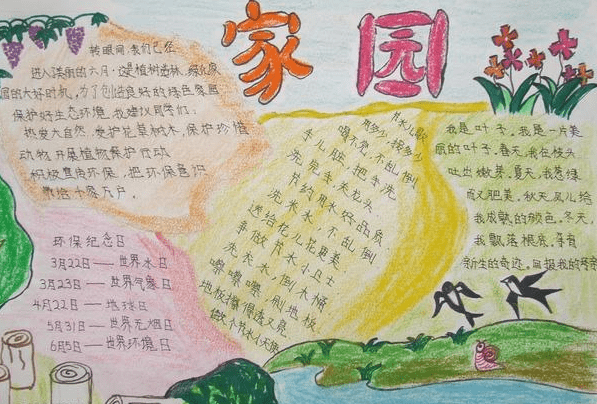 家园
转眼间,我们已经
进入美丽的六月,这是植树造林、绿化家
园的大好时机,为了创造良好的绿色家园
保护好生态环境,我建议同学们:
热爱大自然,爱护花草树木,保护珍惜
动物,开展植物保护行动
积极宣传环保,把环保意识
带给千家万户。
环保纪念日
3月22日——世界水日
3月23日——世界气象日
4月22日——地球日
5月31日——世界无烟日
6月5日——世界环境日
节水儿歌
用多少,接多少
喝不完,不乱倒
手儿脏,把手洗
洗完手,关龙头
节约用水好品质
洗米水,不乱倒
送给花儿花更美
争做节水小卫士
洗衣水,倒大桶
唰唰唰,刷地板
地板擦得亮又亮
做个节水小天使
我是叶子,我是一片美
丽的叶子。春天,我在枝头
吐出嫩芽。夏天,我葱绿
而又肥美。秋天,风儿给
我成熟的颜色。冬天,
我飘落根底,孕育
新生的奇迹,回报我的母亲